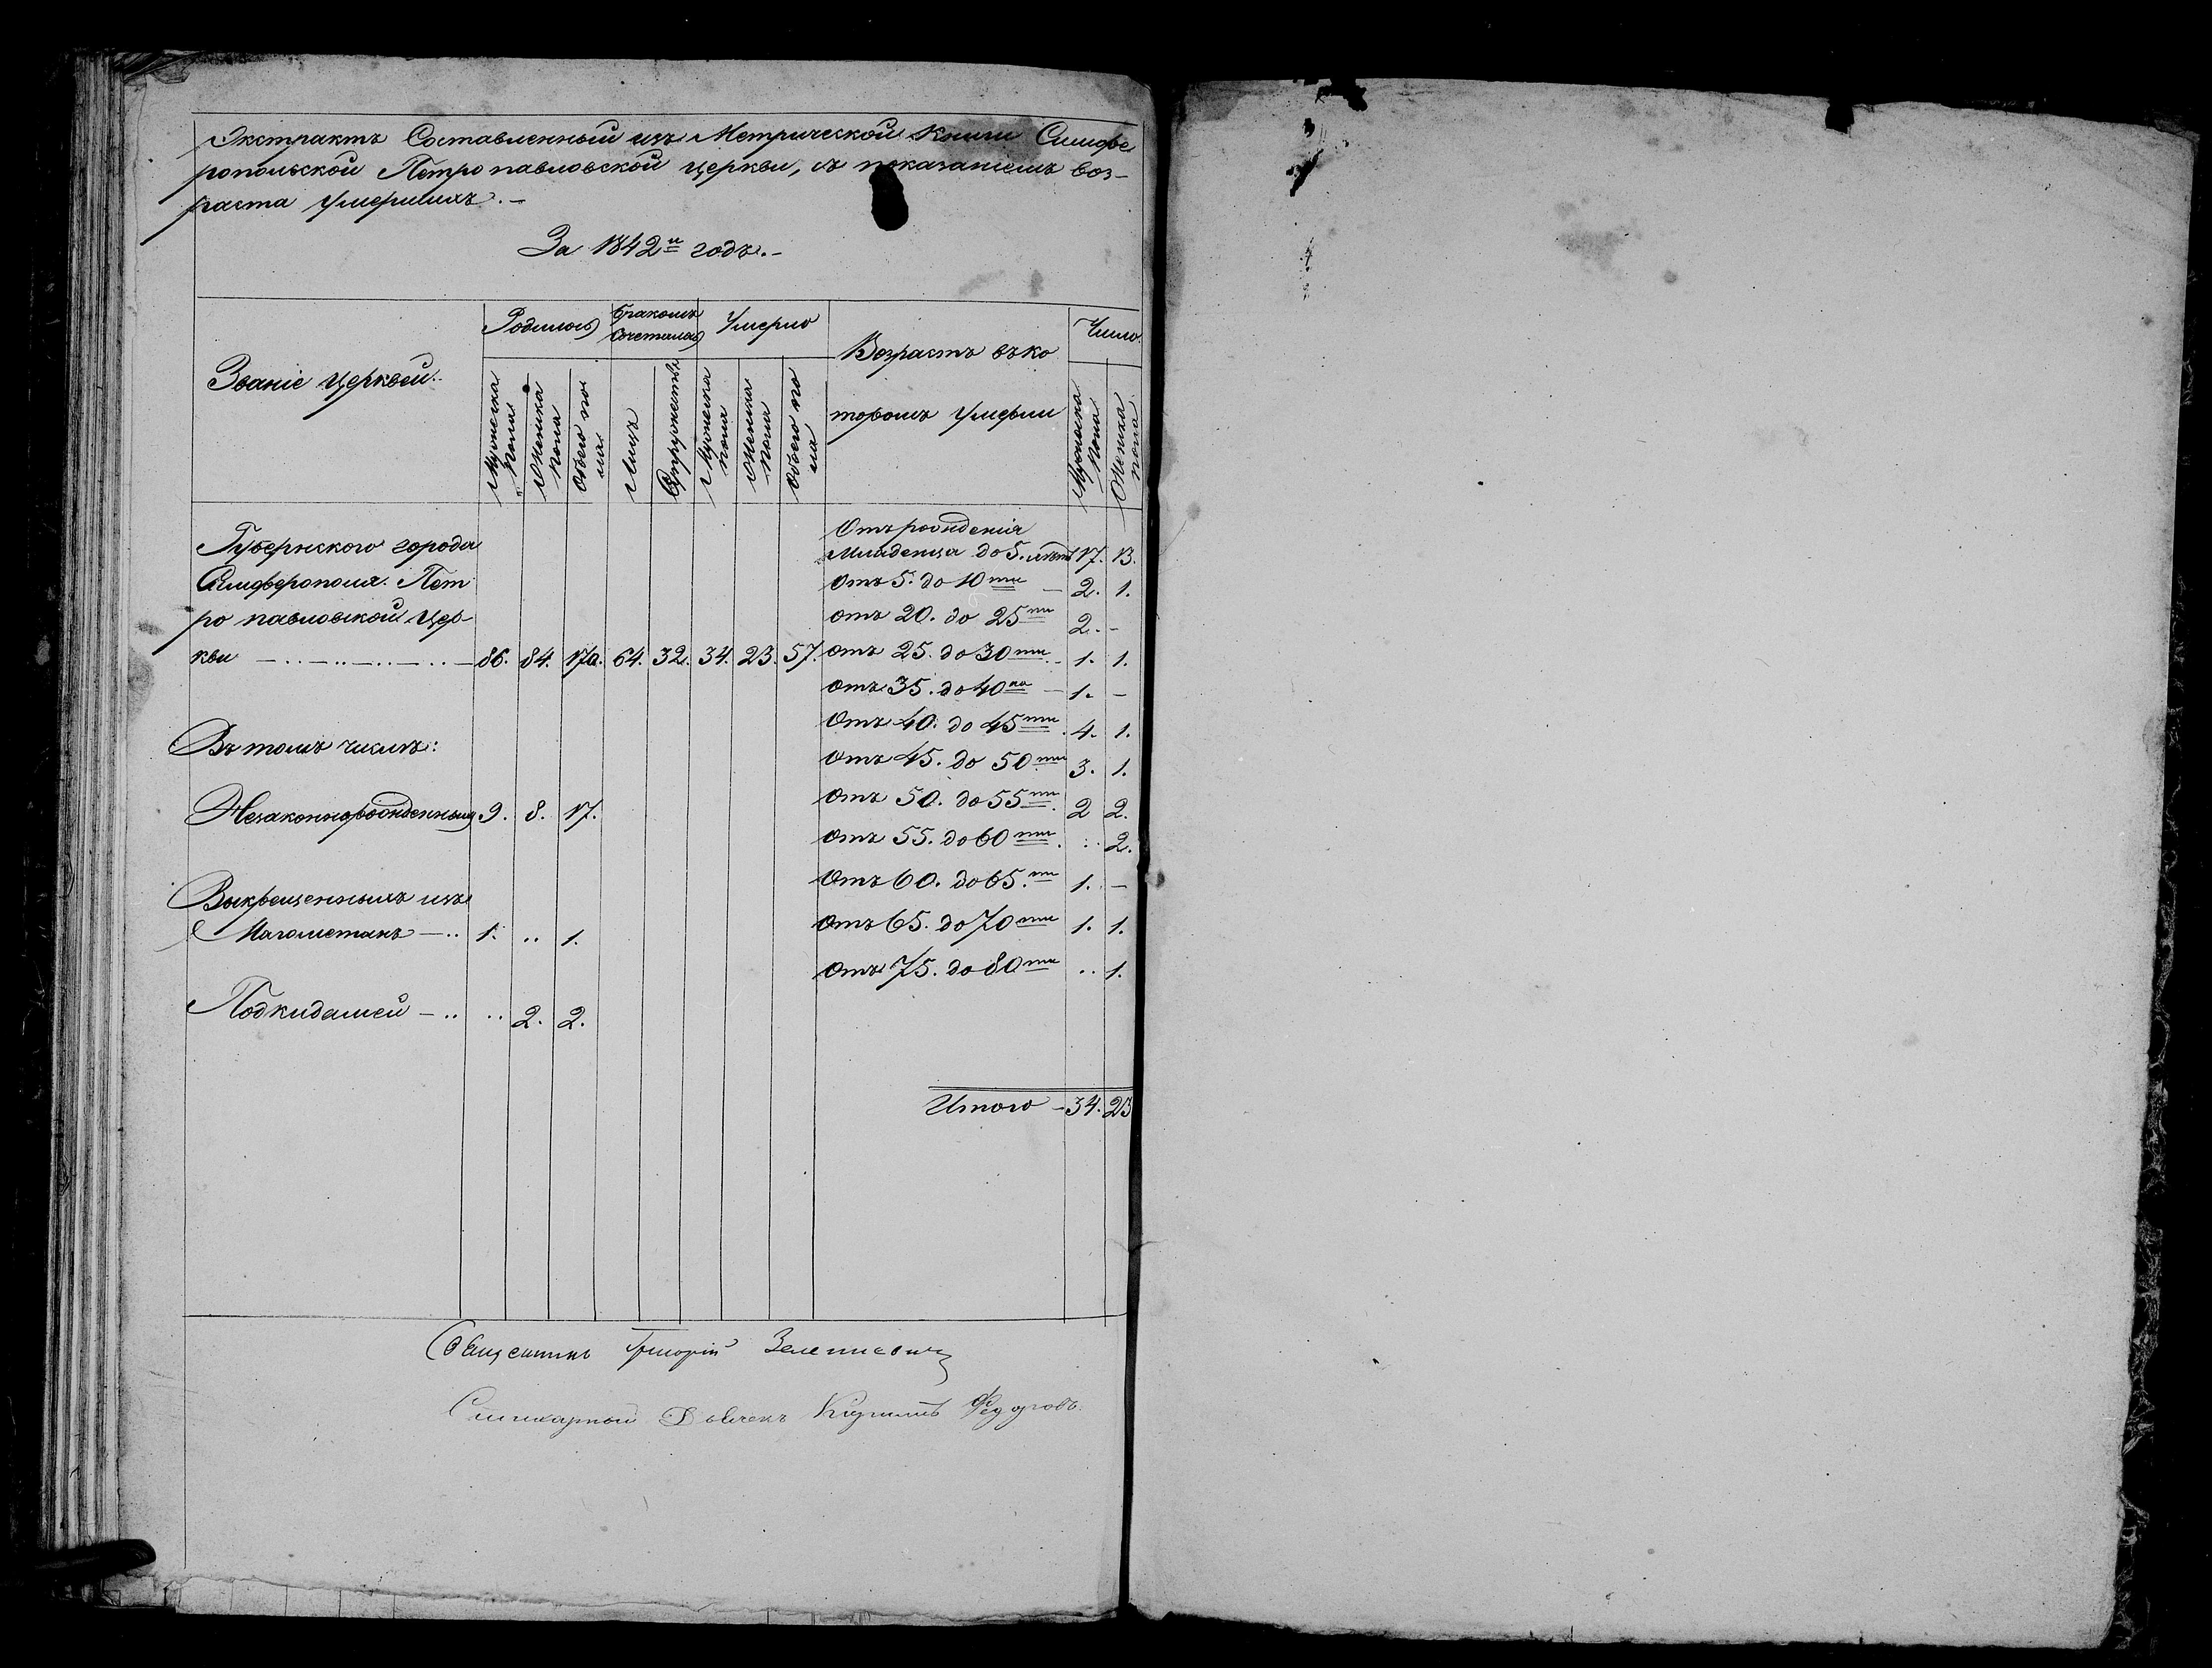 Экстрактъ Составленный изъ Метрической Книги Симфе
ропольской Петропавловской церкви, съ показаніемъ воз-
раста умершихъ.-
За 1842й годъ.-
Званіе церквей.
Родилось
Бракомъ
Сочеталось
Умерло
Возрастъ въ ко
торомъ умерли
Число
Мужеска
пола
Женска
пола
Обоего по
ла
Лицъ
Супружествъ
Мужеска
пола
Женска
пола
Обоего по
ла
Мужеска
пола
Женска
пола
Губернского города
Симферополя. Пет
ро павловской Цер-
кви — .. — .. — .. — .. — 86. 84. 170. 64. 32. 34. 23. 57.
Въ томъ числѣ:
Незаконнорожденныхъ 9. 8. 17.
Выкрещенныхъ изъ
Магометанъ — .. 1. .. 1.
Подкидышей — .. .. 2. 2.
Отъ рожденія
Младенца до 5. лѣтъ 17. 13.
Отъ 5. до 10ти — 2. 1.
отъ 20. до 25ти 2. -
отъ 25. до 30ти - 1. 1.
отъ 35. до 40ка — 1. -
Отъ 40. до 45ти. 4. 1.
отъ 45. до 50ти 3. 1.
отъ 50. до 55ти. 2 2.
отъ 55. до 60ти. .. 2.
Отъ 60. до 65.ти 1. -
отъ 65. до 70ти 1. 1.
отъ 75. до 80ти .. 1.
Итого - 34. 23
Священникъ Григорій
Федоровъ.